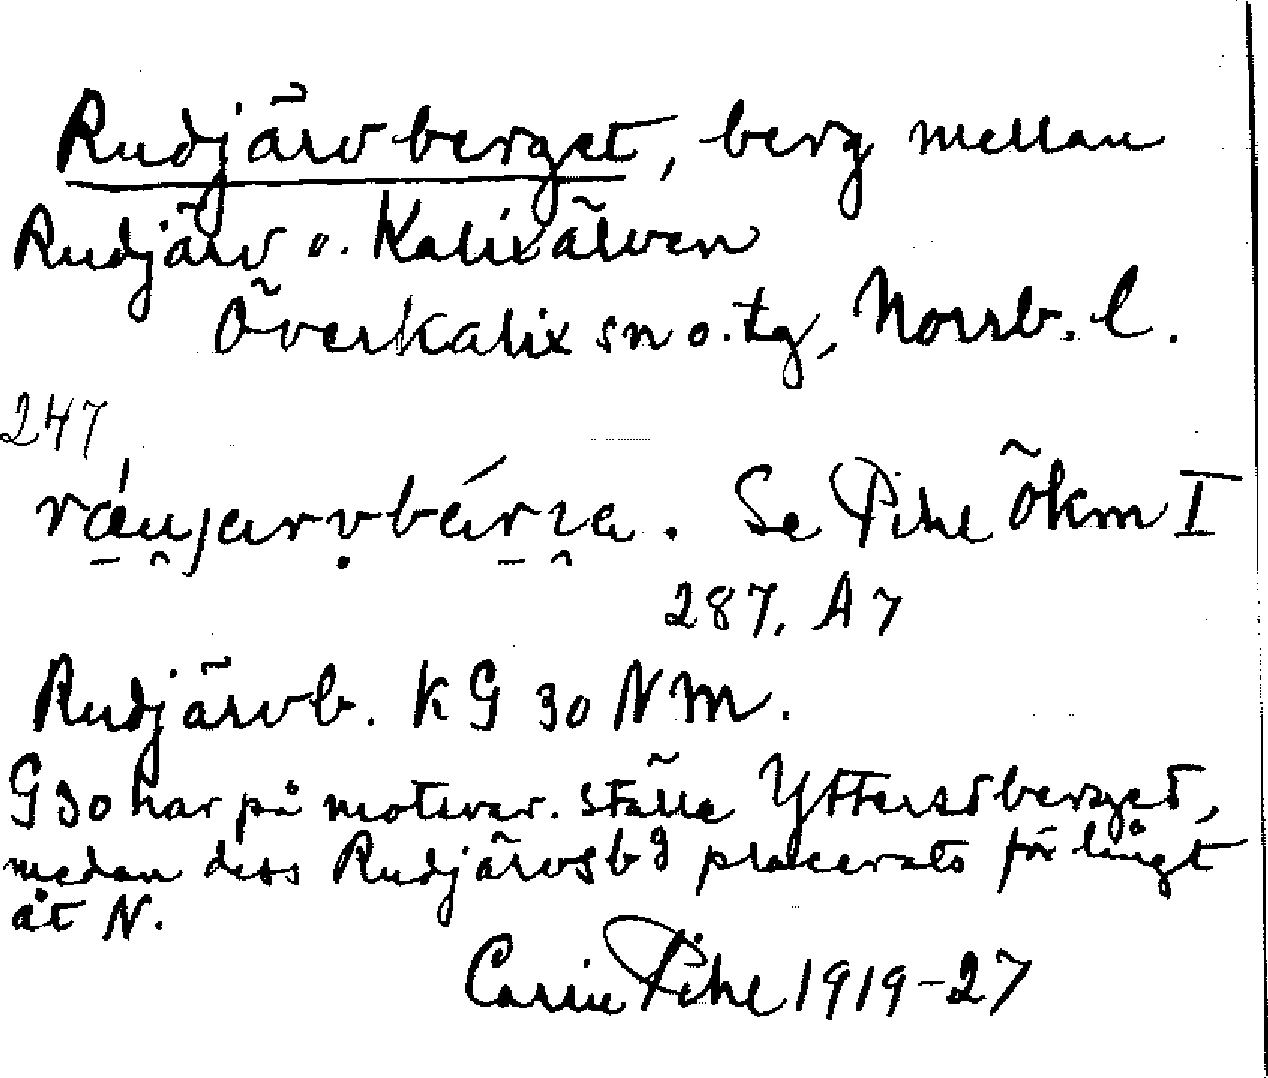 Rudjärvberget, berg mellan
Rudjärv o. Kalixälven
Överkalix sn o. tg, Norrb. l.
247
Se Pihl Ökm I
287, A 7
Rudjärvb. KG 30 NM.
G 30 har på motsvar. ställe Ytterstberget,
medan dess Rudjärvsbg placerats för långt
åt N.
Carin Pihl 1919-27